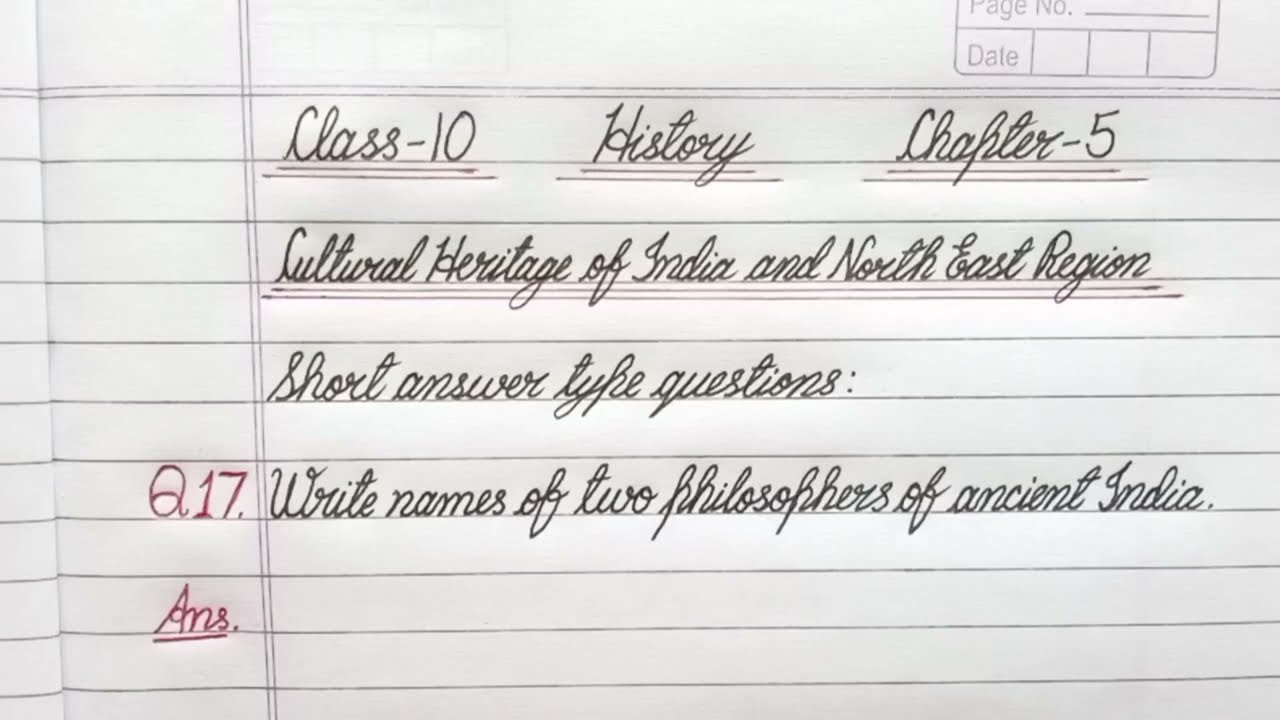 Page No.
Date
Class-10 History Chapter-5
Cultural Heritage of India and North East Region
Short answer type questions:
Q.17. Write names of two philosophers of ancient India.
Ans.